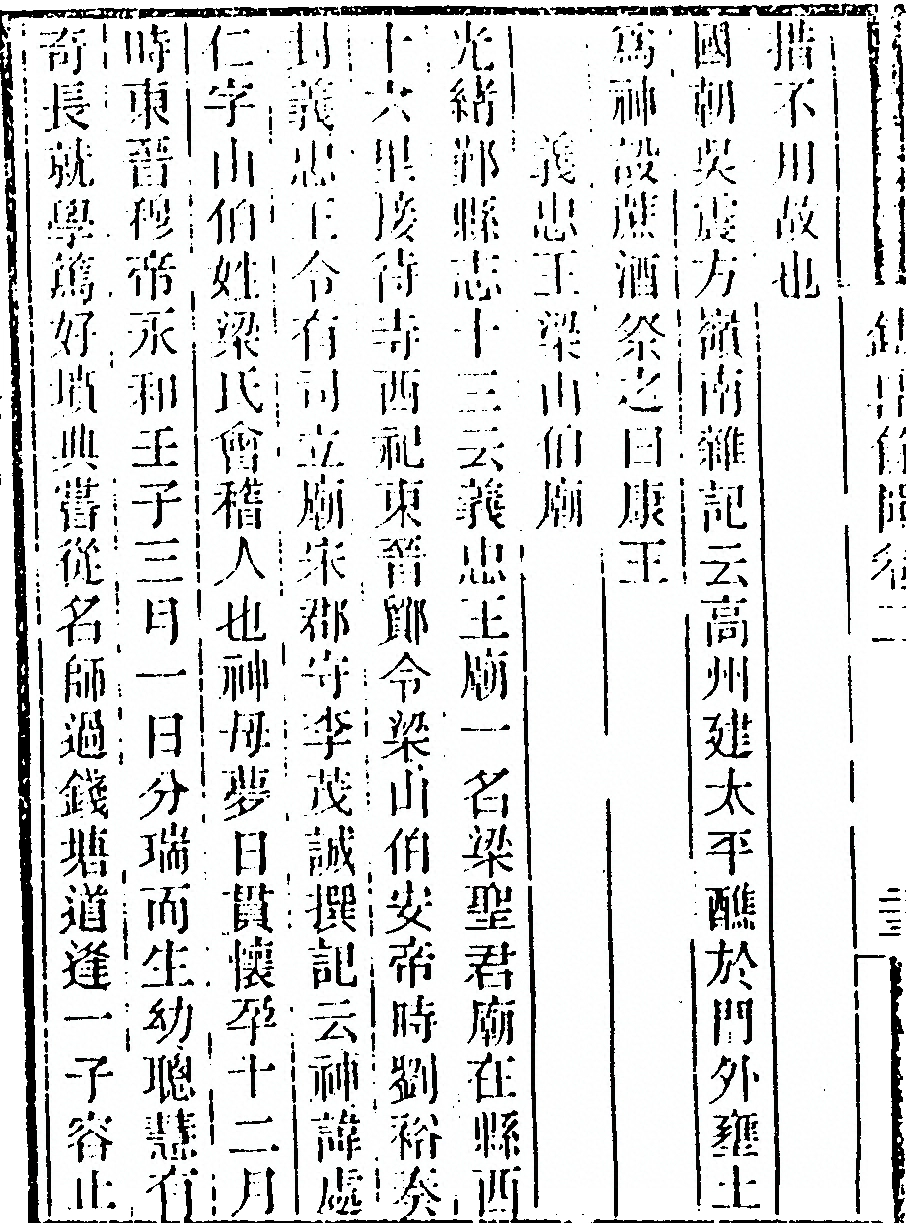 措不用故也
國朝吳震方嶺南雜記云高州建太平醮於門外壅土
爲神設蔗酒祭之曰康王
義忠王梁山伯廟
光緒鄞縣志十三云義忠王廟一名梁聖君廟在縣西
十六里接待寺西祀東晉鄮令梁山伯安帝時劉裕奏
封義忠王令有司立廟宋郡守李茂誠撰記云神諱處
仁字山伯姓梁氏會稽人也神母夢日貫懷孕十二月
時東晉穆帝永和壬子三月一日分瑞而生幼聰慧有
奇長就學篤好墳典嘗從名師過錢塘道逢一子容止
卷二
二三